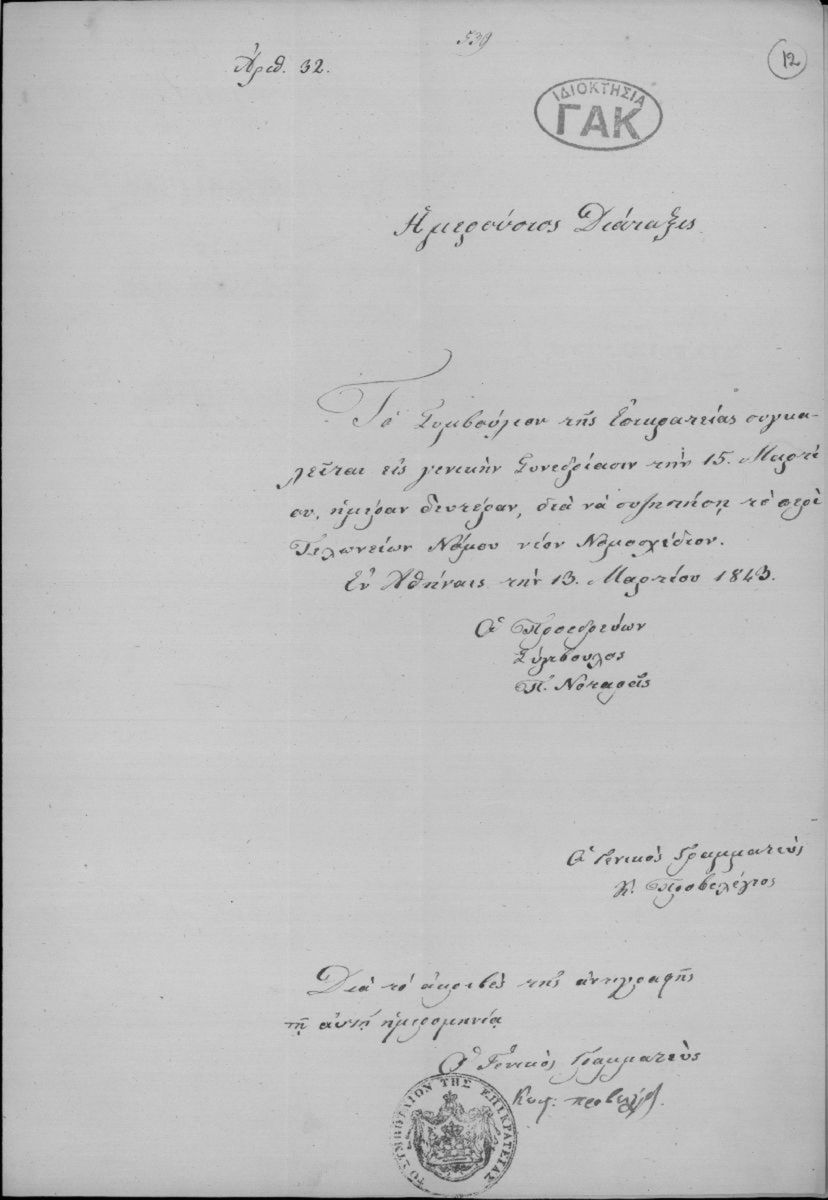 539
12
Ἀριθ. 32.
ΙΔΙΟΚΤΗΣΙΑ
ΓΑΚ
Ἡμερούσιος Διάταξις.
Τὸ Συμβούλιον τῆς Ἐπικρατείας συγκα-
λεῖται εἰς γενικὴν Συνεδρίασιν τὴν 15. Μαρτί
ου, ἡμέραν δευτέραν, διὰ νὰ συζητήσῃ τὸ περὶ
Τελωνείων Νόμου νέον Νομοσχέδιον.
Ἐν Ἀθήναις τὴν 13. Μαρτίου 1843.
Ὁ Προεδρεύων
Σύμβουλος
Π. Νοταρᾶς
Ὁ Γενικὸς Γραμματεὺς
Κ. Προβελέγιος
Διὰ τὸ ἀκριβὲς τῆς ἀντιγραφῆς
τῇ αὐτῇ ἡμερομηνίᾳ
Ὁ Γενικὸς Γραμματεὺς
ΤΟ ΣΥΜΒΟΥΛΙΟΝ ΤΗΣ ΕΠΙΚΡΑΤΕΙΑΣ